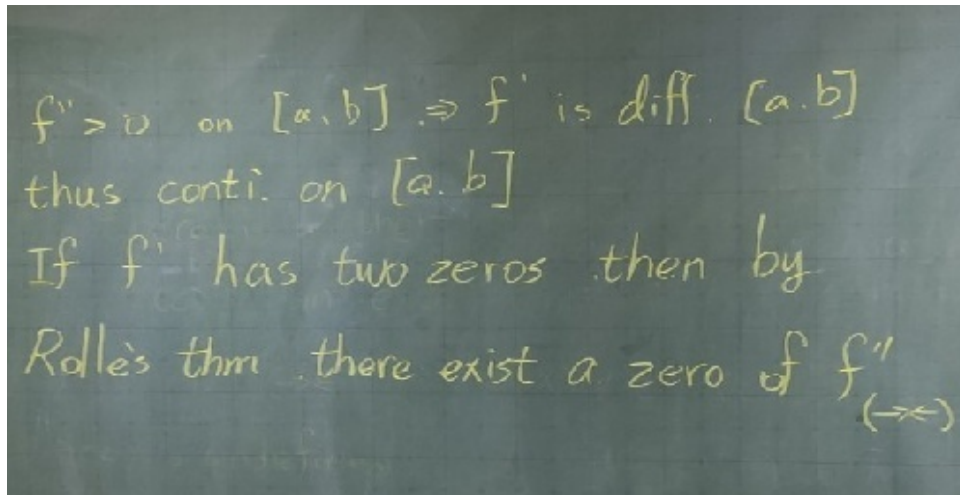 f'' > 0 on [a, b] ⇒ f' is diff. [a.b]
thus conti. on [a.b]
If f' has two zeros then by
Rolle's thm there exist a zero of f''
(→←)